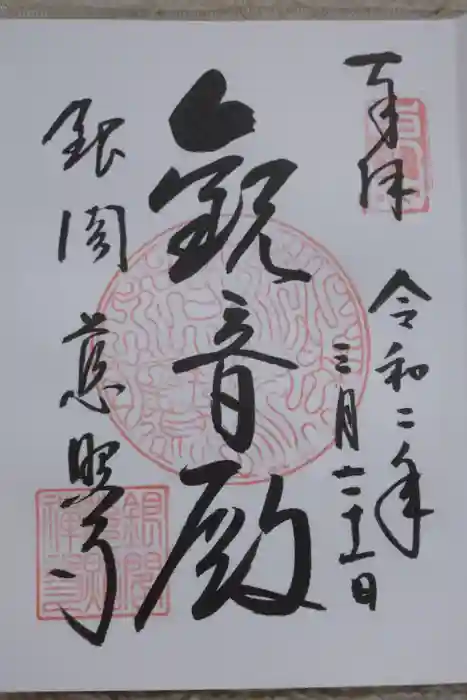 奉拝
令和二年
三月二十一日
観音殿
銀閣 慈照寺
銀閣
慈照
禅寺